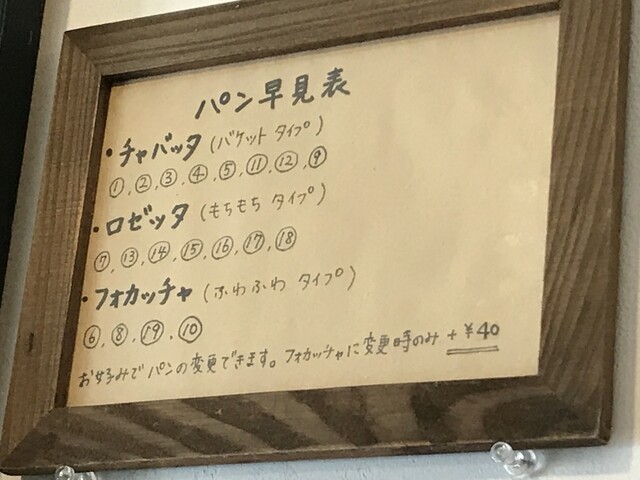 パン早見表
・チャバッタ(バケットタイプ)
①,②,③,④,⑤,⑪,⑫,⑨
・ロゼッタ(もちもちタイプ)
⑦,⑬,⑭,⑮,⑯,⑰,⑱
・フォカッチャ(ふわふわタイプ)
⑥,⑧,⑲,⑩
お好みでパンの変更できます。フォカッチャに変更時のみ+¥40